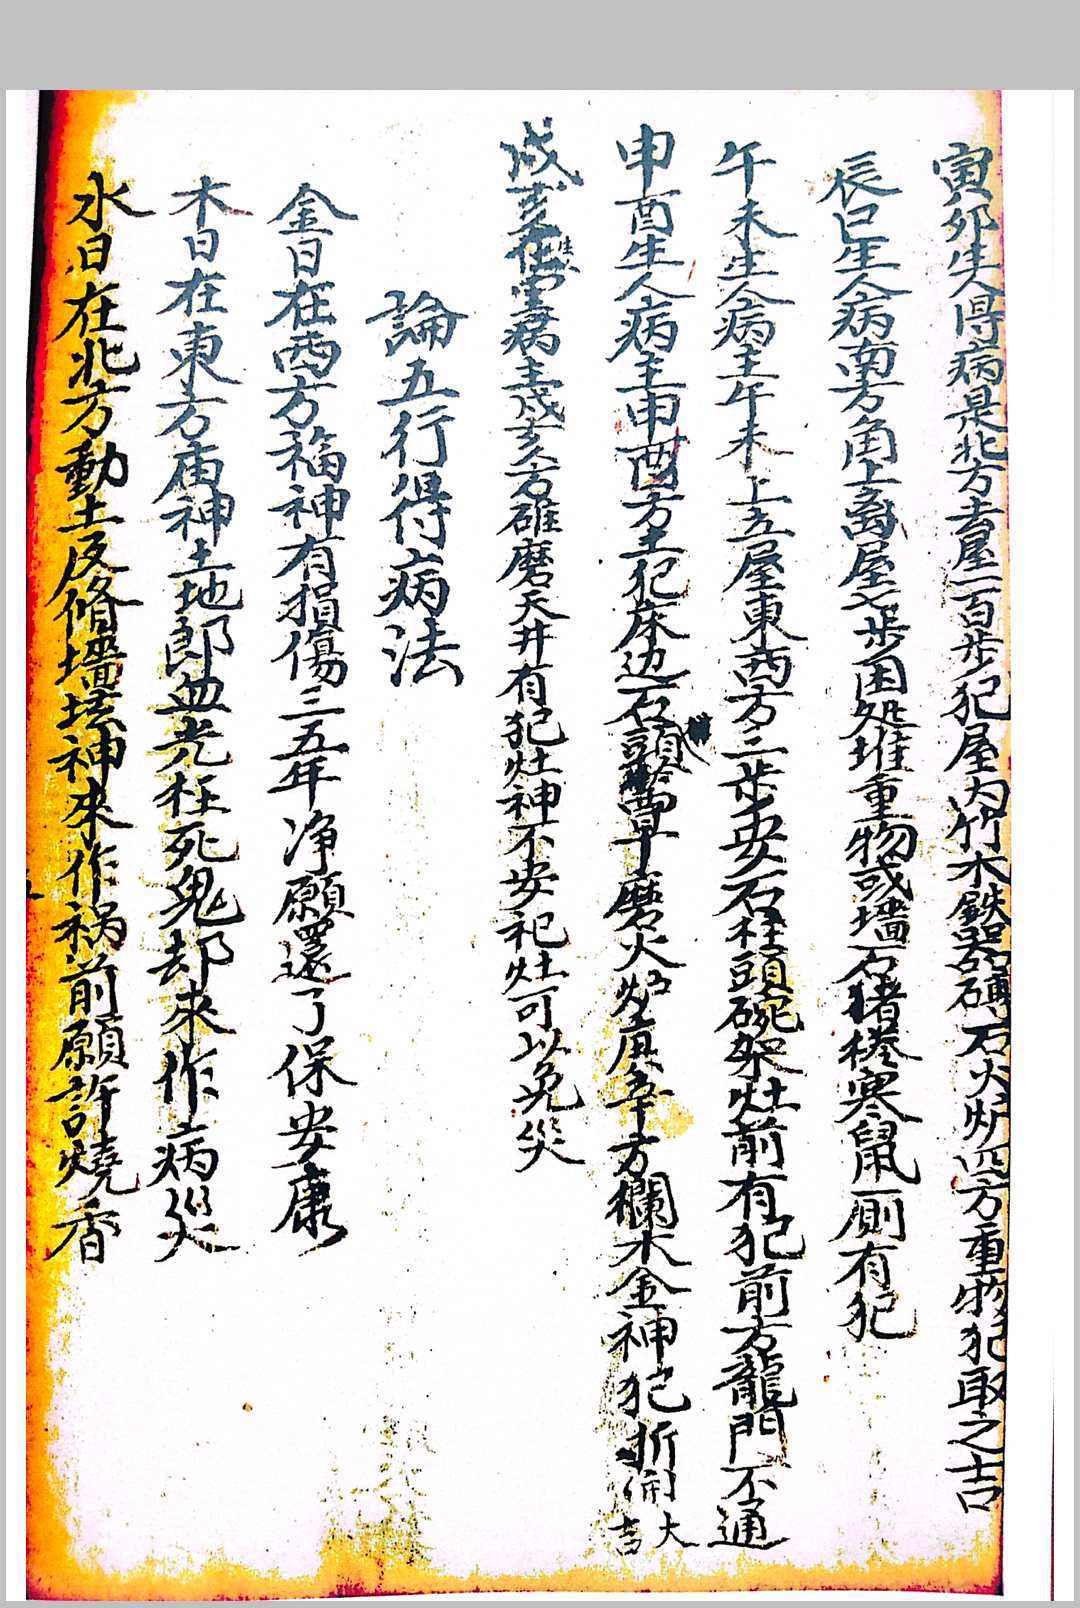 寅卯生人得病是北方去屋一百步犯屋内竹木鉄器磚石火炉四方重物犯取之吉
辰巳生人病南方角上離屋七步困処堆重物或墻石猪棬寒鼠厠有犯
午未生人病主午未上立屋東西方三步安石柱頭碗架灶前有犯前方龍門不通
申酉生人病主申酉方土犯床边石頭草磨火炉庚辛方欄木金神犯折開大吉
戌亥生人病主戌亥方碓磨天井有犯灶神不安祀灶可以免災
論五行得病法
金日在西方福神有損傷三五年净願還了保安康
木日在東方庙神土地郎血光枉死鬼却來作病災
水日在北方動土反脩墻坛神來作祸前願許燒香